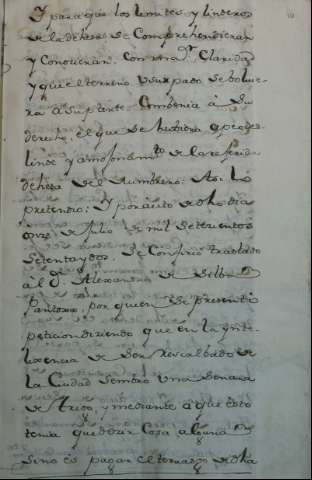 Y para que los limites y linderos
de la dehesa se Comprehendieran
y Conocieran, con ma.r Claridad
y que el terreno Usurpado se bolvie-
ra a su parte Combenia à su
derecho, el que se hiciera apeo y des-
linde y amojonam.to de la referida
dehesa del Asi lo
pretendio; Y por auto de dho dia
onze de Julio de mil setecientos
setenta y dos, se Confirio traslado
al d. Alexandro de
Pantoxa, por quien se presentò
peticion diciendo que en la ynte-
lixencia de ser Rescalbado de
la Ciudad sembro una
de trigo, y mediante a que esto
tenia que dezir Cosa alguna
sino es pagar el terrazgo de dha